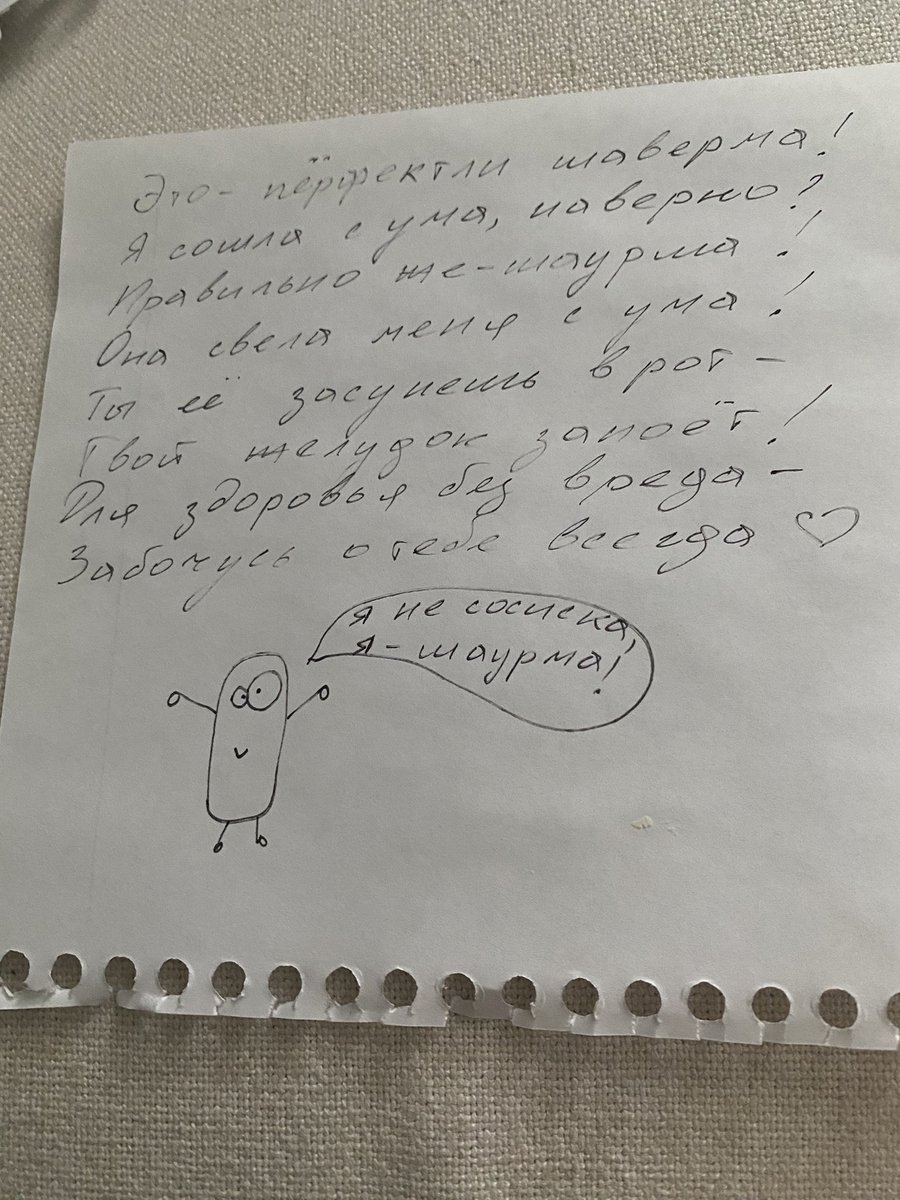 Это - пёрфектли шаверма!
Я сошла с ума, наверно?
Правильно же - шаурма!
Она свела меня с ума!
Ты её засунешь в рот -
Твой желудок запоёт!
Для здоровья без вреда -
Забочусь о тебе всегда ♡
Я не сосиска,
Я - шаурма!